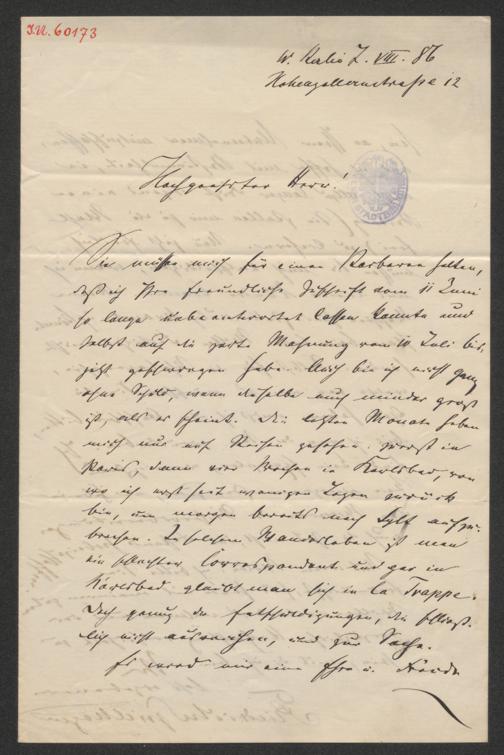 I.N. 60173
W. Berlin 7. VIII. 86
Hohenzollernstraße 12
Hochgeehrter Herr!
Sie müssen mich für einen Barbaren halten,
daß ich Ihre freundliche Zuschrift vom 11 Juni
so lange unbeantwortet lassen konnte und
selbst auf die zarte Mahnung vom 10 Juli bis
jetzt geschwiegen habe. Auch bin ich nicht ganz
ohne Schuld, wenn dieselbe auch minder groß
ist, als es scheint. Die letzten Monate haben
mich nur auf Reisen gesehen: zuerst in
Paris, dann vier Wochen in Karlsbad, von
wo ich erst seit wenigen Tagen zurück
bin, um morgen bereits nach Sylt aufzu-
brechen. In solchem Wanderleben ist man
ein schlechter Correspondent und gar in
Karlsbad glaubt man sich in La Trappe.
Doch genug der Entschuldigungen, die schließ-
lich nicht ausreichen, und zur Sache.
Es wird mir eine Ehre u. Freude